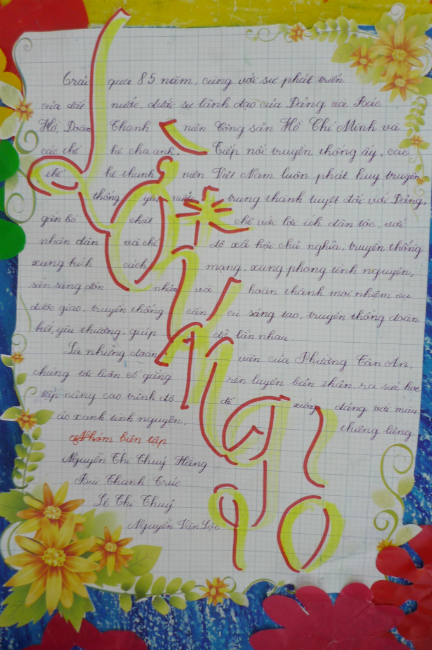 Trải qua 85 năm, cùng với sự phát triển
của đất nước, dưới sự lãnh đạo của Đảng và Bác
Hồ, Đoàn Thanh niên Cộng sản Hồ Chí Minh và
các thế hệ cha anh. Tiếp nối truyền thống ấy, các
thế hệ thanh niên Việt Nam luôn phát huy truyền
thống yêu nước, trung thành tuyệt đối với Đảng,
gắn bó chặt chẽ với lợi ích dân tộc, với
nhân dân và chế độ xã hội chủ nghĩa, truyền thống
xung kích cách mạng, xung phong tình nguyện,
sẵn sàng đón nhận và hoàn thành mọi nhiệm vụ
được giao, truyền thống cần cù sáng tạo, truyền thống đoàn
kết, yêu thương, giúp đỡ lẫn nhau
Là những đoàn viên của Phường Tân An,
chúng tôi luôn cố gắng rèn luyện bản thân, ra sức học
tập nâng cao trình độ để xứng đáng với màu
áo xanh tình nguyện. chiêng liêng.
Nhóm biên tập
Nguyễn Thị Thuý Hằng
Bùi Thanh Trúc
Lê Thị Thuý
Nguyễn Văn Lộc